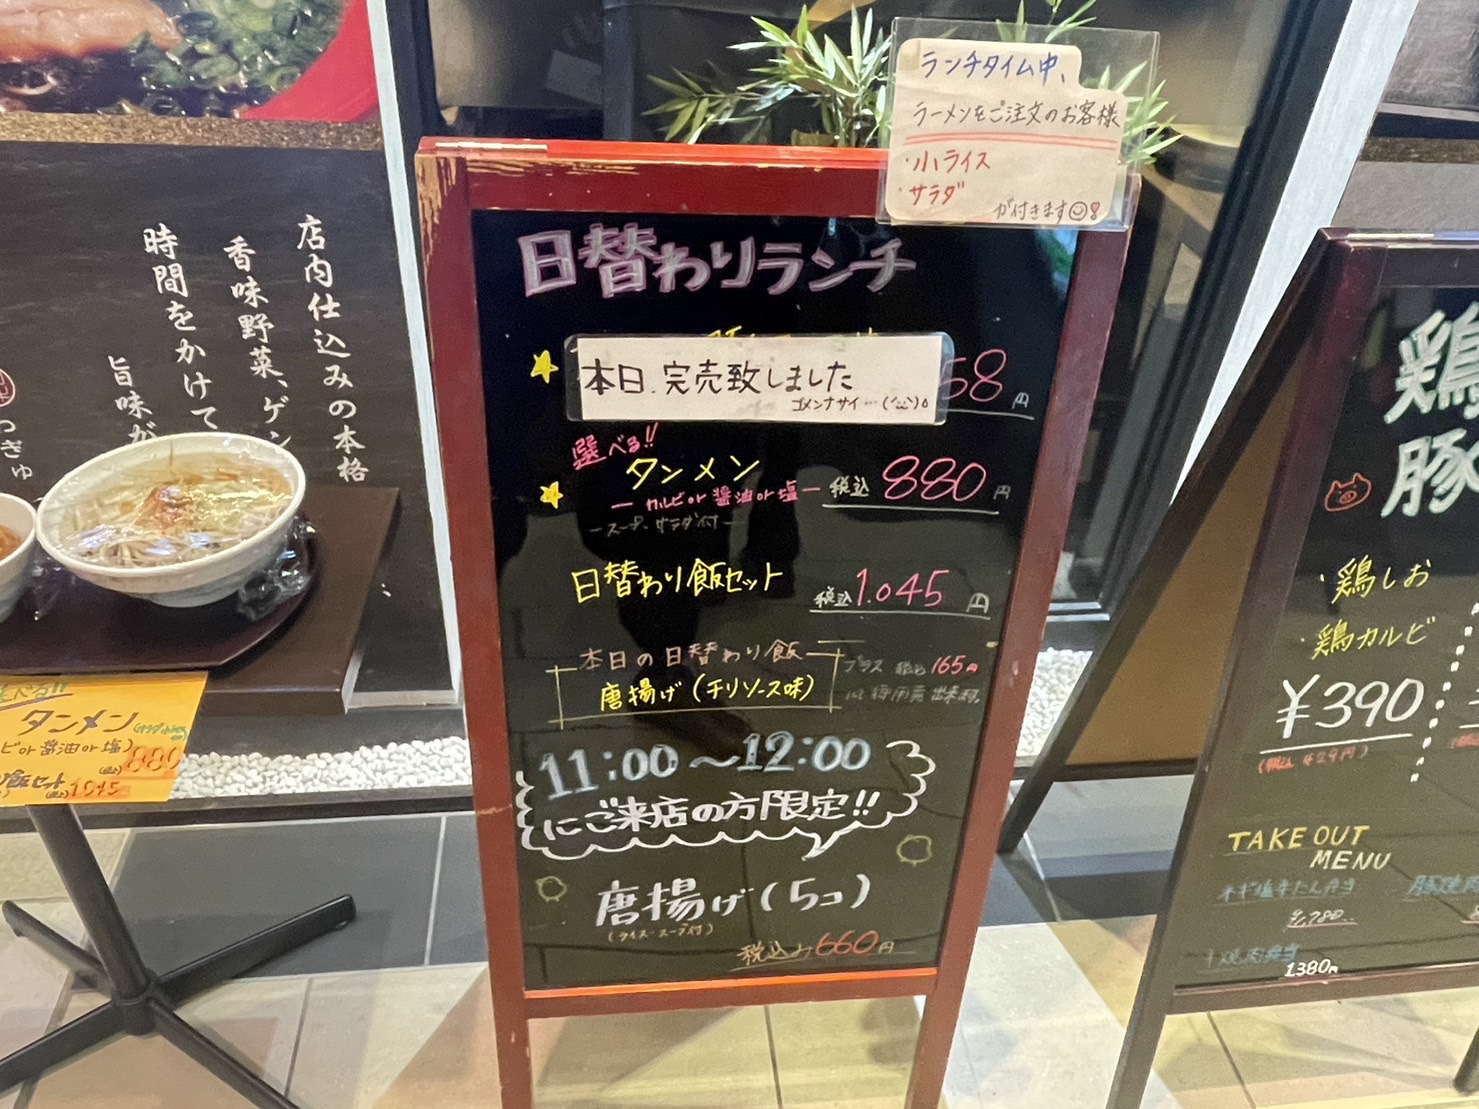 ランチタイム中、
ラーメンをご注文のお客様
・小ライス
・サラダ
が付きます
日替わりランチ
本日、完売致しました
ゴメンナサイ…
58円
選べる!!
タンメン
ーカルビor醤油or塩ー
税込880円
ースープ、サラダ付ー
日替わり飯セット 税込1.045円
本日の日替わり飯
唐揚げ(チリソース味)
プラス 税込165円
11:00～12:00
にご来店の方限定!!
唐揚げ(5コ)
(ライス・スープ付)
税込み660円
店内仕込みの本格
香味野菜、ゲン
時間をかけて
旨味が
つぎゅ
タンメン
ビor醤油or塩)
880
飯セット
1045
鶏
豚
・鶏しお
・鶏カルビ
¥390
(税込429円)
TAKE OUT
MENU
ネギ塩牛たん弁当
焼肉弁当
1380円